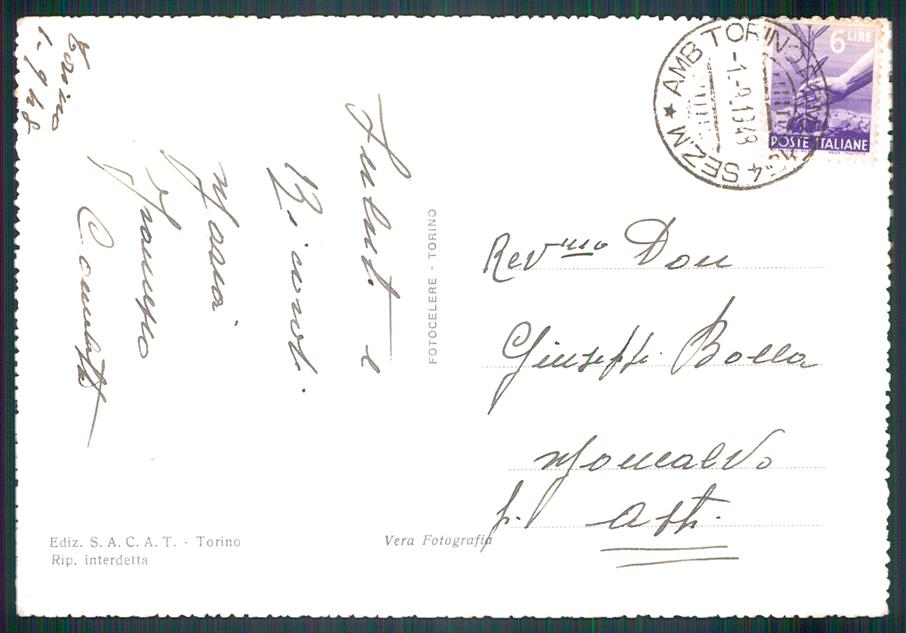 Torino
1-9 48
Saluti e
Ricordi
Maria
Francesco
AMB TORINO
-1.9.1948
4 SEZ.M ★
6 LIRE
POSTE ITALIANE
FOTOCELERE - TORINO
Rev.mo Don
Giuseppe Bolla
Moncalvo
p. Asti.
Ediz. S. A. C. A. T. - Torino
Rip. interdetta
Vera Fotografia